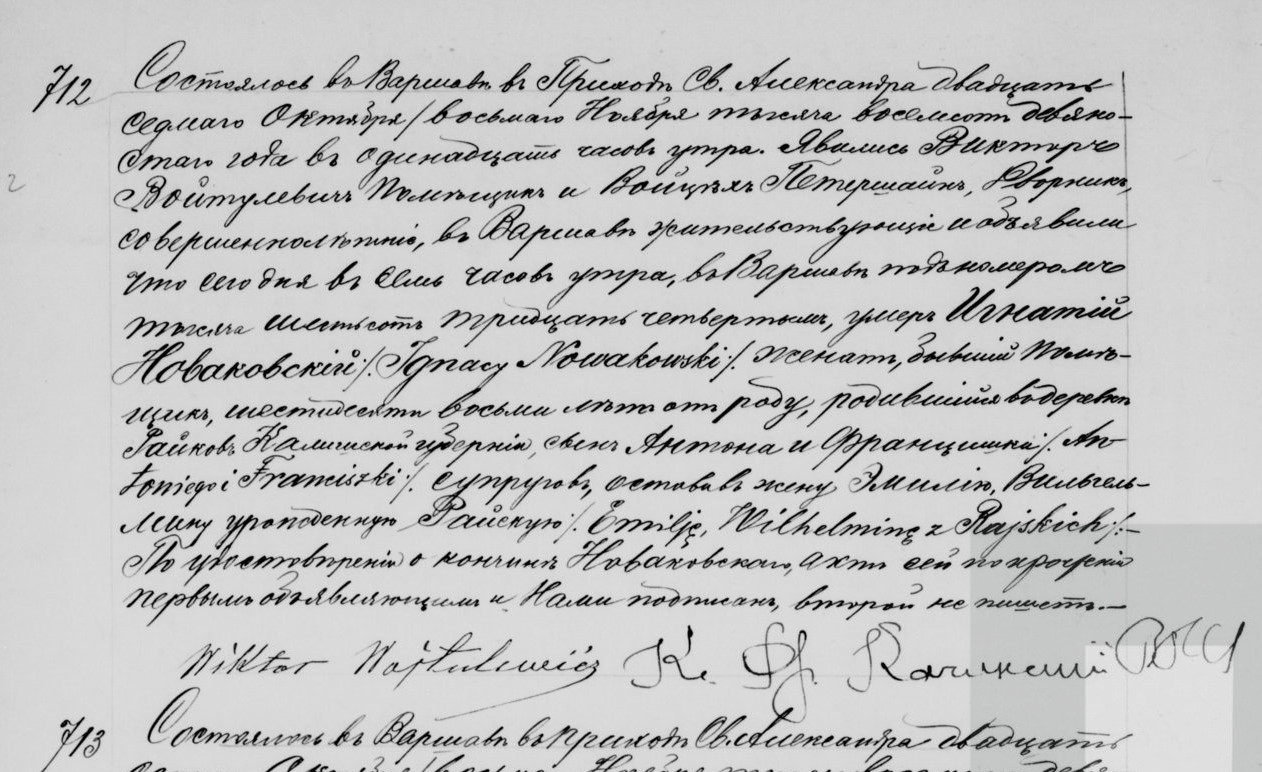 712 Состоялось въ Варшавѣ въ Приходѣ Св. Александра двадцать
седмаго Октября / восьмаго Ноября тысяча восемсотъ девяно-
стаго года въ одинадцать часовъ утра. Явились Викторъ
Войтулевичъ Помѣщикъ и Войцѣхъ Петершайнъ, Дворникъ,
совершеннолѣтніе, въ Варшавѣ жительствующіе и объявили
что сего дня въ семь часовъ утра, въ Варшавѣ подъ номеромъ
тысяча шестьсотъ тридцать четвертымъ, умеръ Игнатій
Новаковскій /: Ignacy Nowakowski :/ женатъ, бывшій Помѣ-
щикъ, шестидесяти восьми лѣтъ отъ роду, родившійся въ деревнѣ
Райковъ Калишской губерніи, сынъ Антона и Францишки /: An-
toniego i Franciszki :/ супруговъ, оставивъ жену Эмилію, Вильгель-
мину урожденную Райскую /: Emilję, Wilhelminę z Rajskich :/.—
По удостовѣреніи о кончинѣ Новаковскаго, актъ сей по прочтеніи
первымъ объявляющимъ и Нами подписанъ, второй не пишетъ.—
Wiktor Wojtulewicz К. Ф. Качинскій
713 Состоялось въ Варшавѣ въ приходѣ Св. Александра двадцать